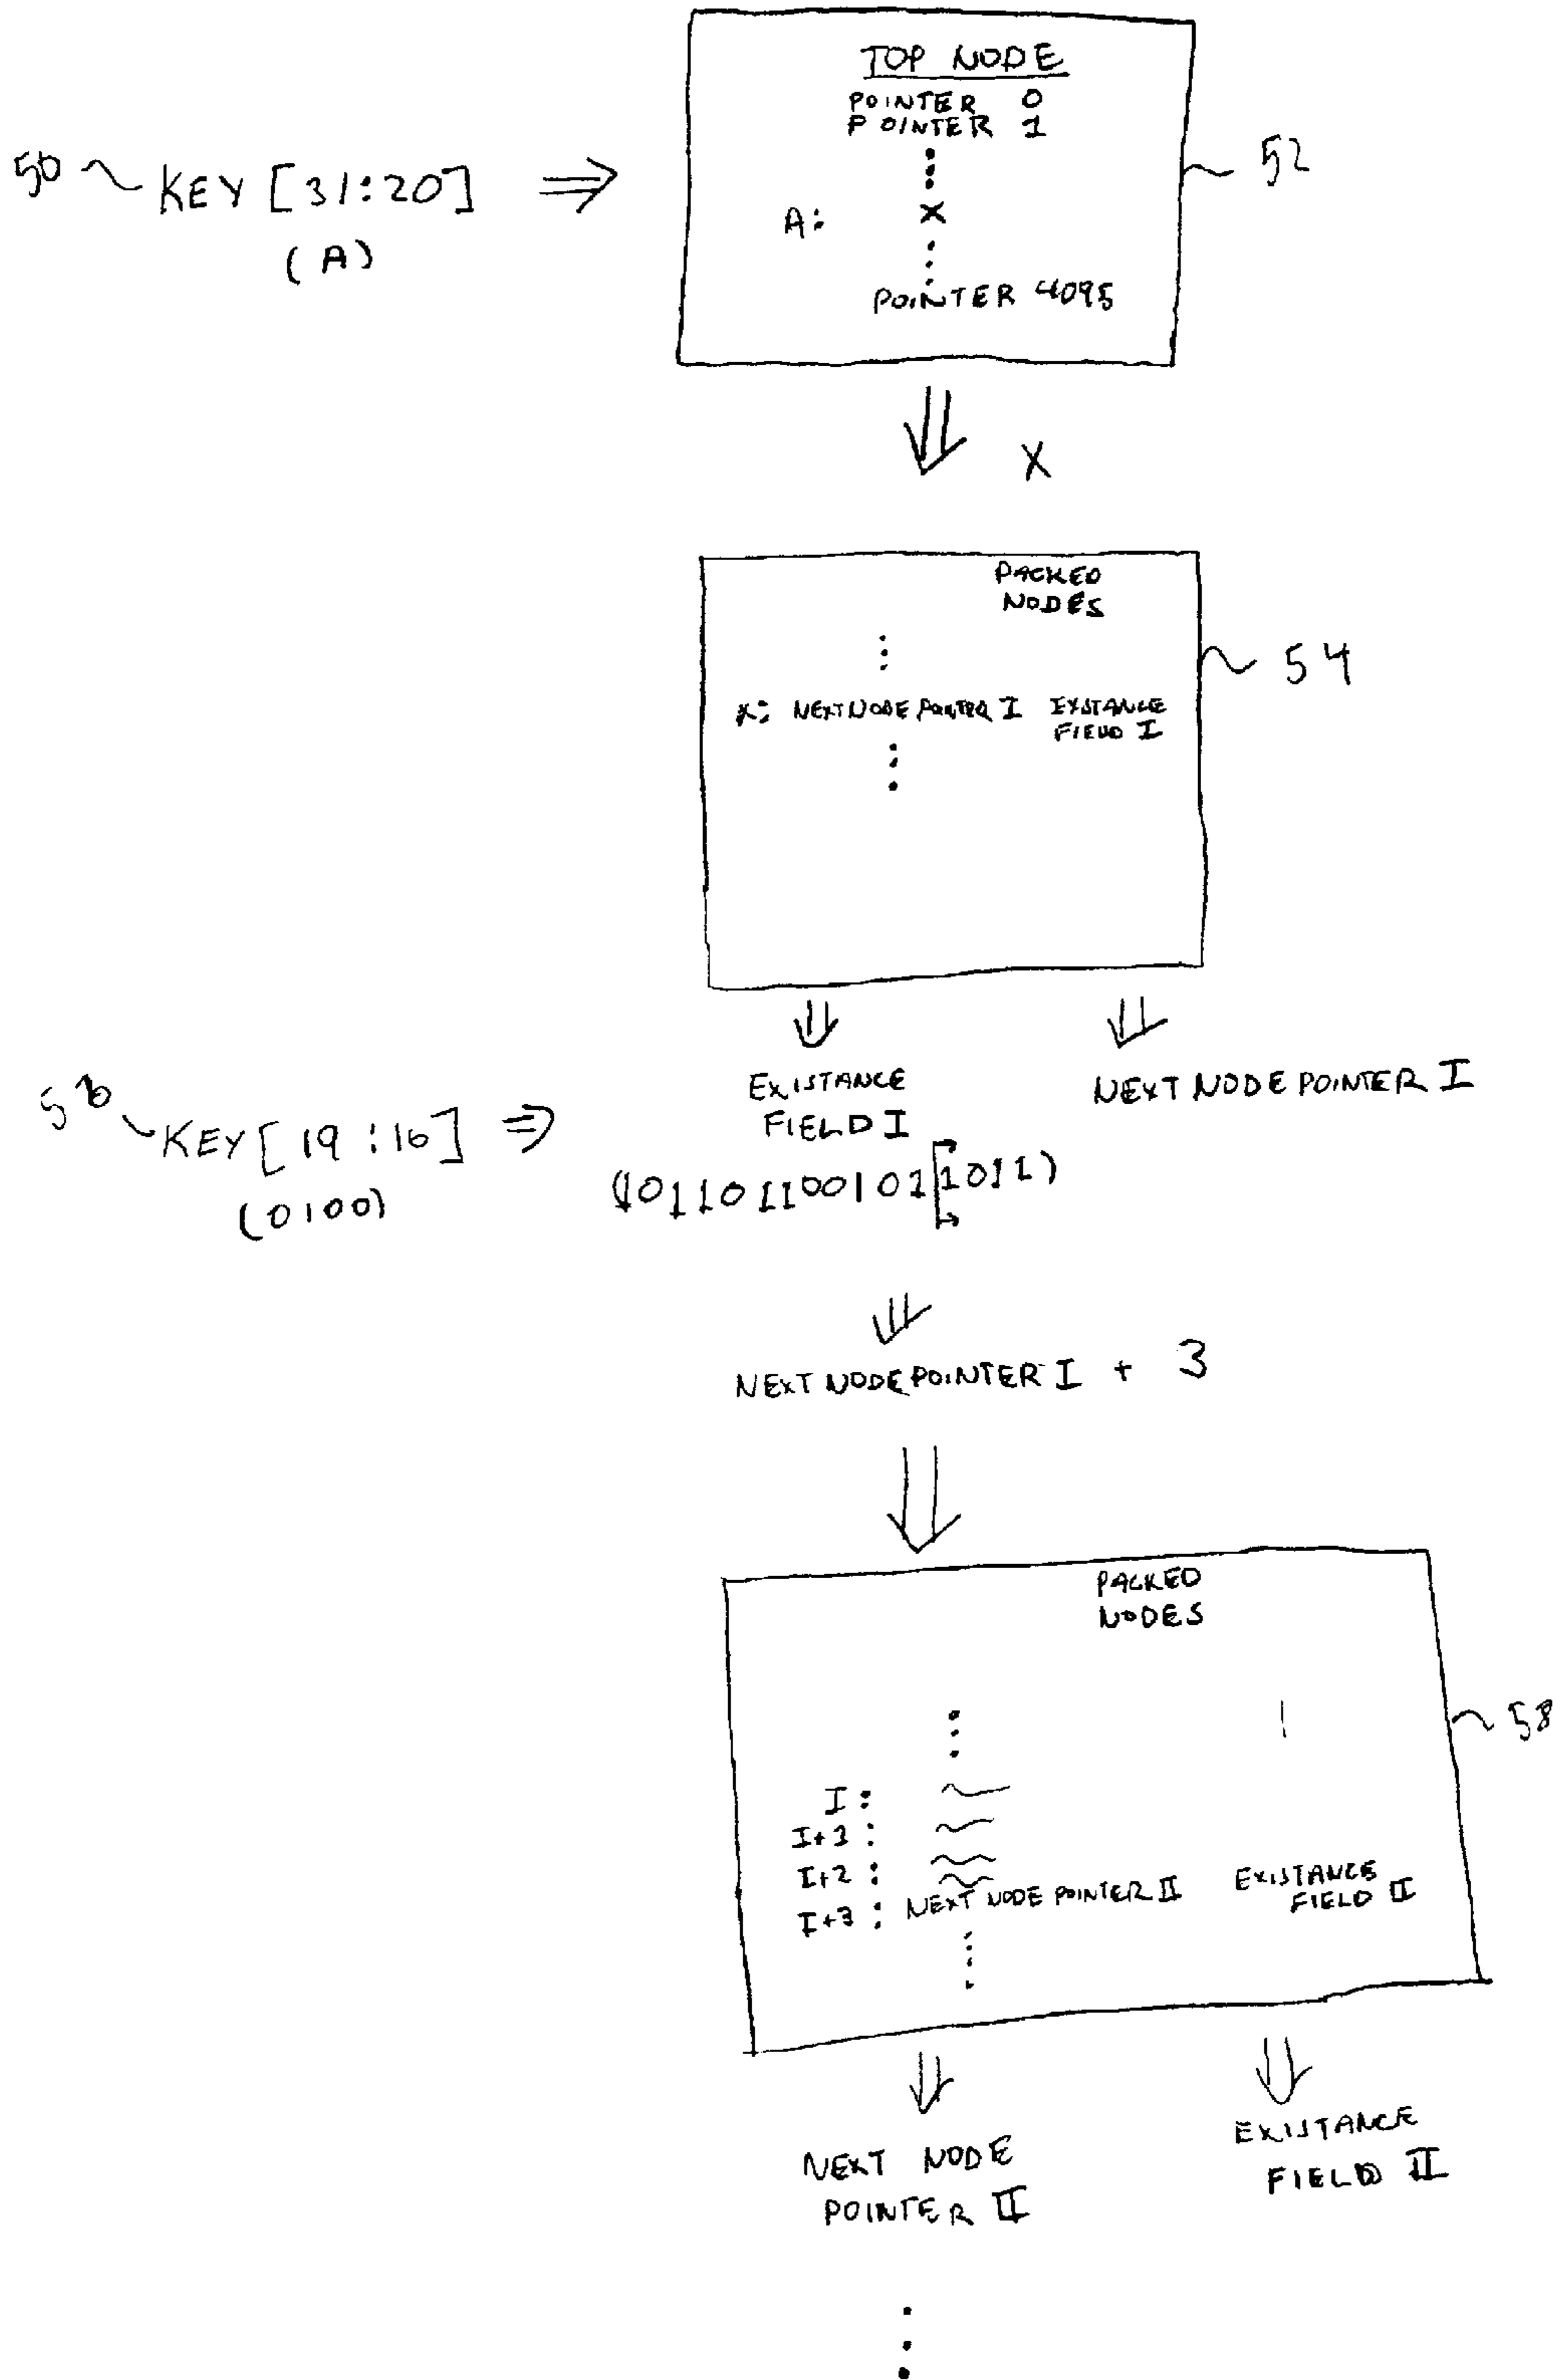 TOP NODE
POINTER 0
POINTER 1
50 KEY [31:20] ⇒
(A)
52
A: X
POINTER 4095
X
PACKED
NODES
54
X: NEXT NODE POINTER I EXISTANCE
FIELD I
EXISTANCE
FIELD I
NEXT NODE POINTER I
56 KEY [19:16] ⇒
(0100)
(1011011001011011)
NEXT NODE POINTER I + 3
PACKED
NODES
58
I:
I+1:
I+2:
I+3: NEXT NODE POINTER II EXISTANCE
FIELD II
NEXT NODE
POINTER II
EXISTANCE
FIELD II